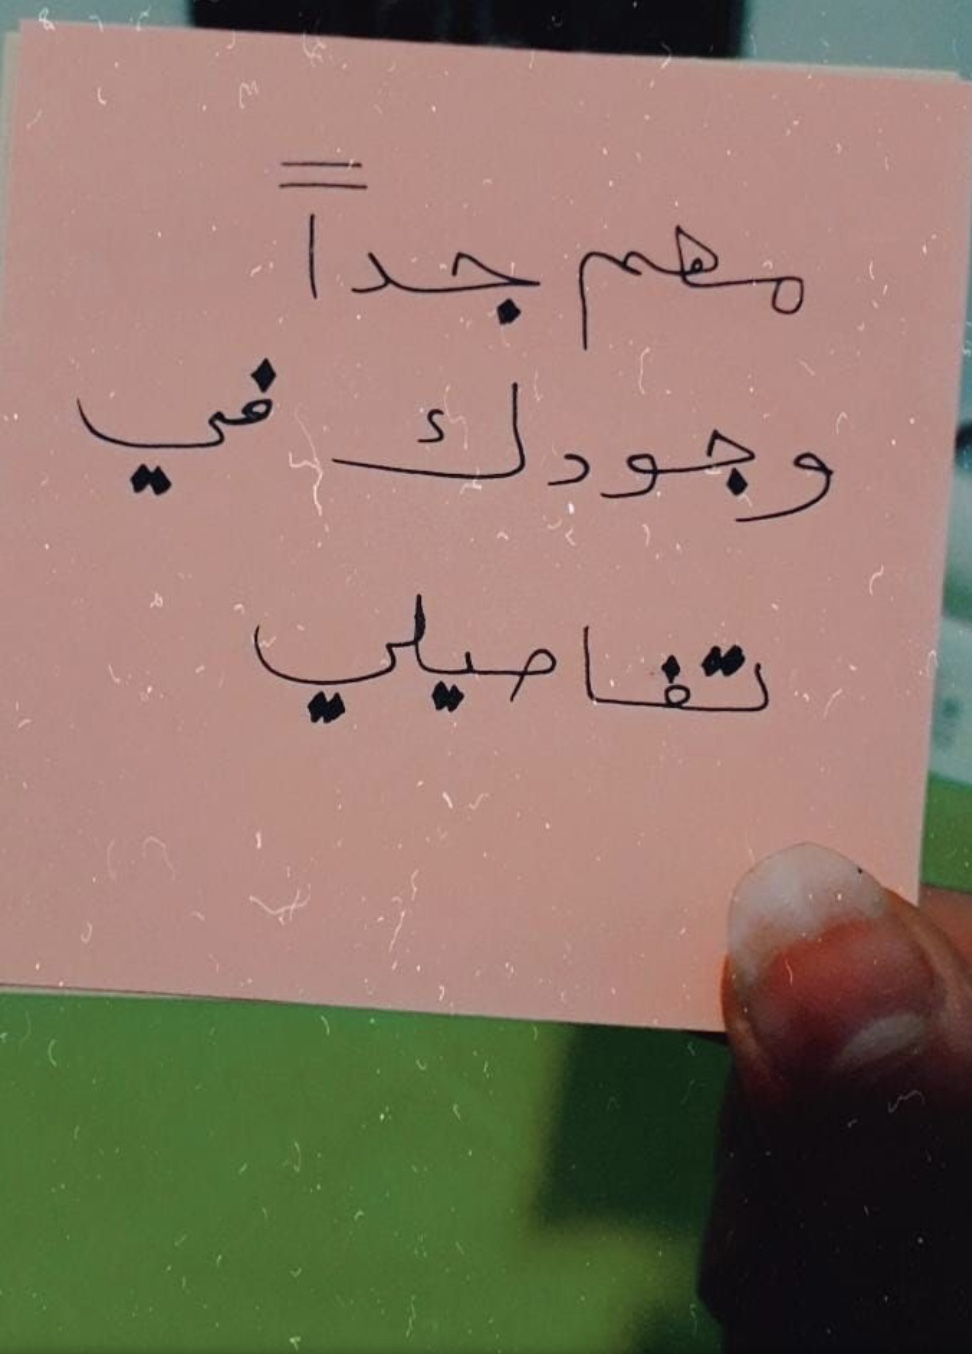 مهم جداً
وجودك في
تفاصيلي